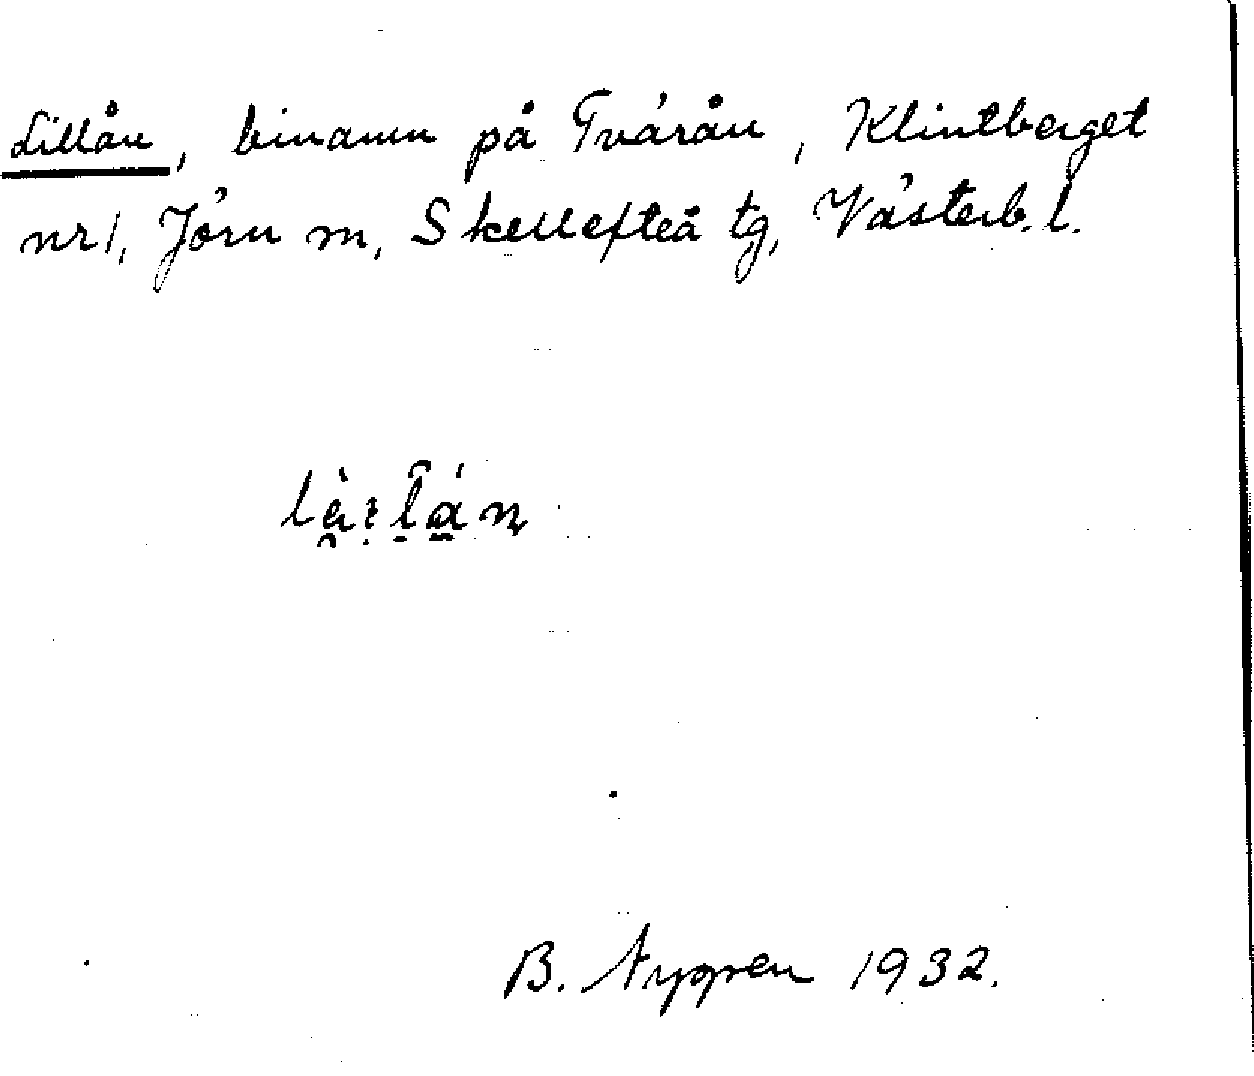 Lillån, binamn på Tvärån, Klintberget
nr 1, Jörn sn, Skellefteå tg, Västerb. l.
B. Nygren 1932.